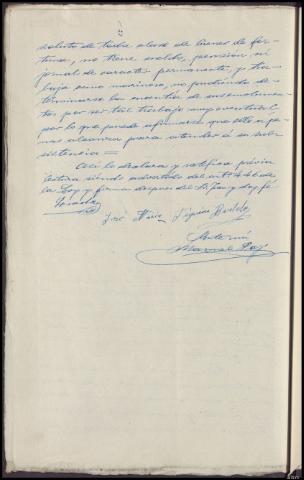 soluto de toda clase de bienes de for-
tuna, no tiene sueldo, pensión ni
jornal de caracter permanente, y tra-
baja como marinero, no pudiendo de-
terminarse la cuantía de
tos por ser tal trabajo muy eventual
por lo que puede afirmarse que este a pe-
nas alcanza para atender á su sub-
sistencia =
Asi lo declara y ratifica previa
lectura siendo advertido del artº 446 de
la Ley y firma despues del Sr Juez doy fé
José
Antemi
Manuel Paz